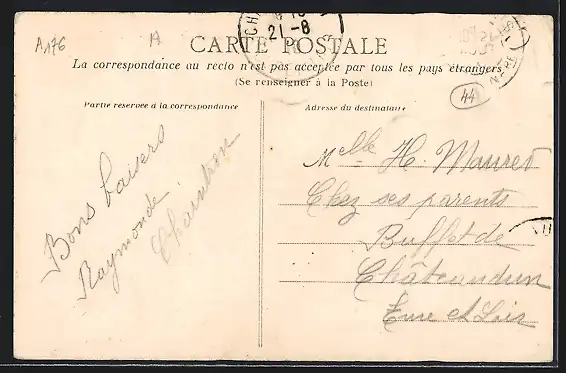 A176
A
21-8
CARTE POSTALE
La correspondance au recto n'est pas acceptée par tous les pays étrangers
(Se renseigner à la Poste)
44
Partie réservée à la correspondance
Adresse du destinataire
Bons baisers
Raymonde
Melle H. Mauret
Chez ses parents
Buffet de
Châteaudun
Eure et Loir